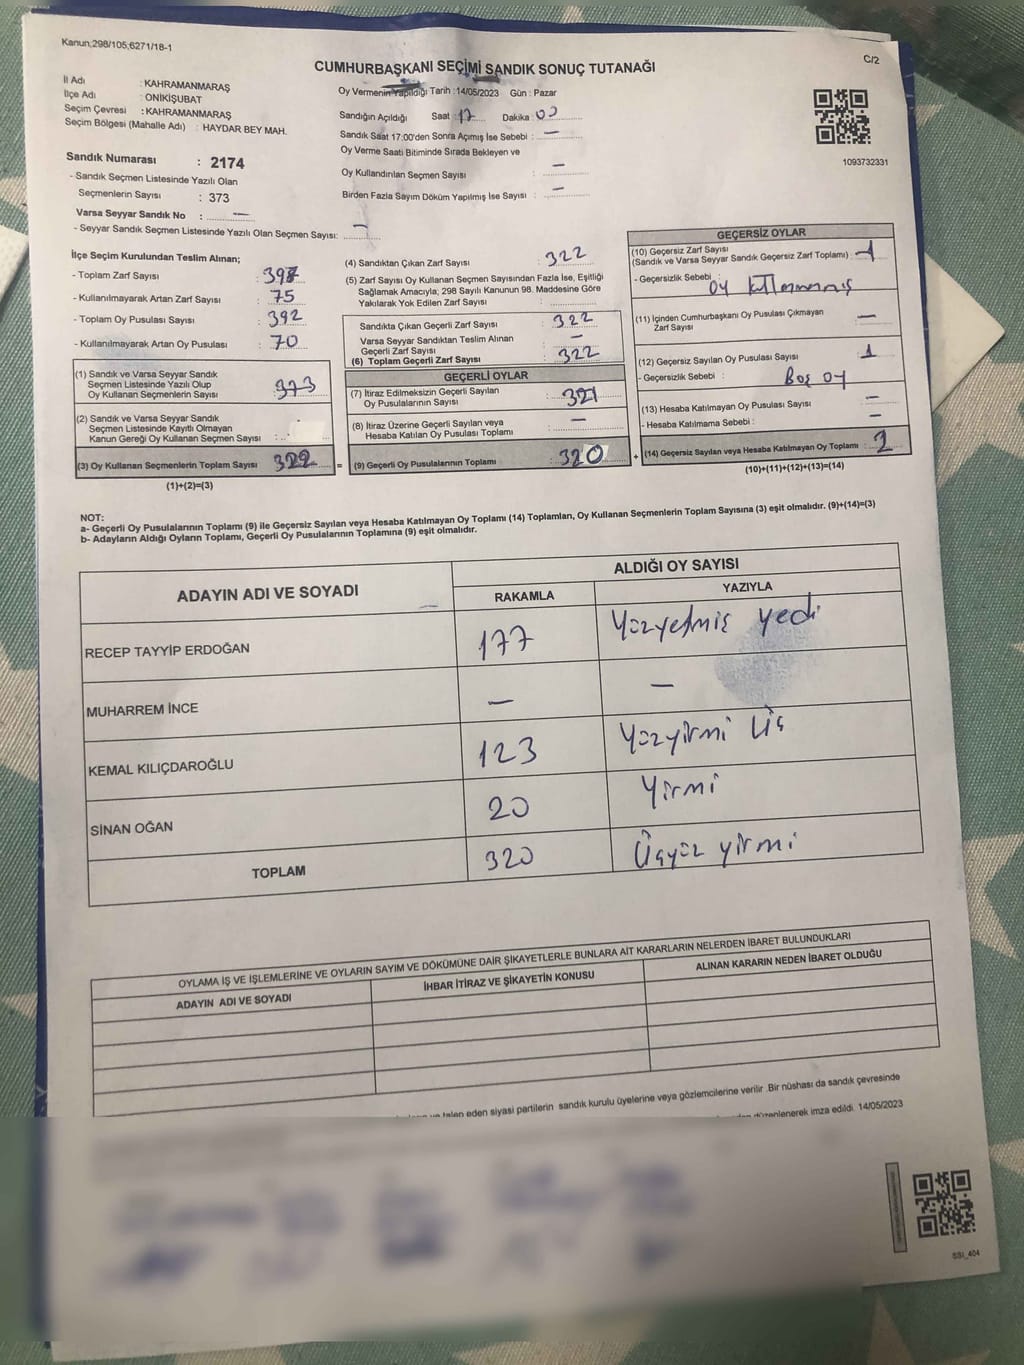 Kanun;298/105,6271/18-1
C/2
CUMHURBAŞKANI SEÇİMİ SANDIK SONUÇ TUTANAĞI
İl Adı : KAHRAMANMARAŞ
İlçe Adı : ONİKİŞUBAT
Seçim Çevresi : KAHRAMANMARAŞ
Seçim Bölgesi (Mahalle Adı) : HAYDAR BEY MAH.
Sandık Numarası : 2174
- Sandık Seçmen Listesinde Yazılı Olan
Seçmenlerin Sayısı : 373
Varsa Seyyar Sandık No : —
- Seyyar Sandık Seçmen Listesinde Yazılı Olan Seçmen Sayısı: —
Oy Vermenin Yapıldığı Tarih :14/05/2023 Gün : Pazar
Sandığın Açıldığı Saat : 17 Dakika : 00
Sandık Saat 17:00'den Sonra Açımış İse Sebebi : —
Oy Verme Saati Bitiminde Sırada Bekleyen ve
Oy Kullandırılan Seçmen Sayısı : —
Birden Fazla Sayım Döküm Yapılmış İse Sayısı : —
1093732331
İlçe Seçim Kurulundan Teslim Alınan;
- Toplam Zarf Sayısı : 397
- Kullanılmayarak Artan Zarf Sayısı : 75
- Toplam Oy Pusulası Sayısı : 392
- Kullanılmayarak Artan Oy Pusulası : 70
(1) Sandık ve Varsa Seyyar Sandık
Seçmen Listesinde Yazılı Olup
Oy Kullanan Seçmenlerin Sayısı : 373
(2) Sandık ve Varsa Seyyar Sandık
Seçmen Listesinde Kayıtlı Olmayan
Kanun Gereği Oy Kullanan Seçmen Sayısı :
(3) Oy Kullanan Seçmenlerin Toplam Sayısı 322
(1)+(2)=(3)
(4) Sandıktan Çıkan Zarf Sayısı : 322
(5) Zarf Sayısı Oy Kullanan Seçmen Sayısından Fazla İse, Eşitliği
Sağlamak Amacıyla; 298 Sayılı Kanunun 98. Maddesine Göre
Yakılarak Yok Edilen Zarf Sayısı :
Sandıkta Çıkan Geçerli Zarf Sayısı : 322
Varsa Seyyar Sandıktan Teslim Alınan
Geçerli Zarf Sayısı : —
(6) Toplam Geçerli Zarf Sayısı : 322
GEÇERLİ OYLAR
(7) İtiraz Edilmeksizin Geçerli Sayılan
Oy Pusulalarının Sayısı : 321
(8) İtiraz Üzerine Geçerli Sayılan veya
Hesaba Katılan Oy Pusulası Toplamı : —
= (9) Geçerli Oy Pusulalarının Toplamı : 320
GEÇERSİZ OYLAR
(10) Geçersiz Zarf Sayısı
(Sandık ve Varsa Seyyar Sandık Geçersiz Zarf Toplamı) : 1
- Geçersizlik Sebebi :
(11) İçinden Cumhurbaşkanı Oy Pusulası Çıkmayan
Zarf Sayısı : —
(12) Geçersiz Sayılan Oy Pusulası Sayısı : 1
- Geçersizlik Sebebi : Boş oy
(13) Hesaba Katılmayan Oy Pusulası Sayısı : —
- Hesaba Katılmama Sebebi : —
+ (14) Geçersiz Sayılan veya Hesaba Katılmayan Oy Toplamı : 2
(10)+(11)+(12)+(13)=(14)
NOT:
a- Geçerli Oy Pusulalarının Toplamı (9) ile Geçersiz Sayılan veya Hesaba Katılmayan Oy Toplamı (14) Toplamları, Oy Kullanan Seçmenlerin Toplam Sayısına (3) eşit olmalıdır. (9)+(14)=(3)
b- Adayların Aldığı Oyların Toplamı, Geçerli Oy Pusulalarının Toplamına (9) eşit olmalıdır.
ADAYIN ADI VE SOYADI
ALDIĞI OY SAYISI
RAKAMLA YAZIYLA
RECEP TAYYİP ERDOĞAN 177 Yüzyetmiş yedi
MUHARREM İNCE — —
KEMAL KILIÇDAROĞLU 123 Yüzyirmi üç
SİNAN OĞAN 20 Yirmi
TOPLAM 320 Üçyüz yirmi
OYLAMA İŞ VE İŞLEMLERİNE VE OYLARIN SAYIM VE DÖKÜMÜNE DAİR ŞİKAYETLERLE BUNLARA AİT KARARLARIN NELERDEN İBARET BULUNDUKLARI
ADAYIN ADI VE SOYADI İHBAR İTİRAZ VE ŞİKAYETİN KONUSU ALINAN KARARIN NEDEN İBARET OLDUĞU
ve talep eden siyasi partilerin sandık kurulu üyelerine veya gözlemcilerine verilir .Bir nüshası da sandık çevresinde
düzenlenerek imza edildi. 14/05/2023
SSI_404